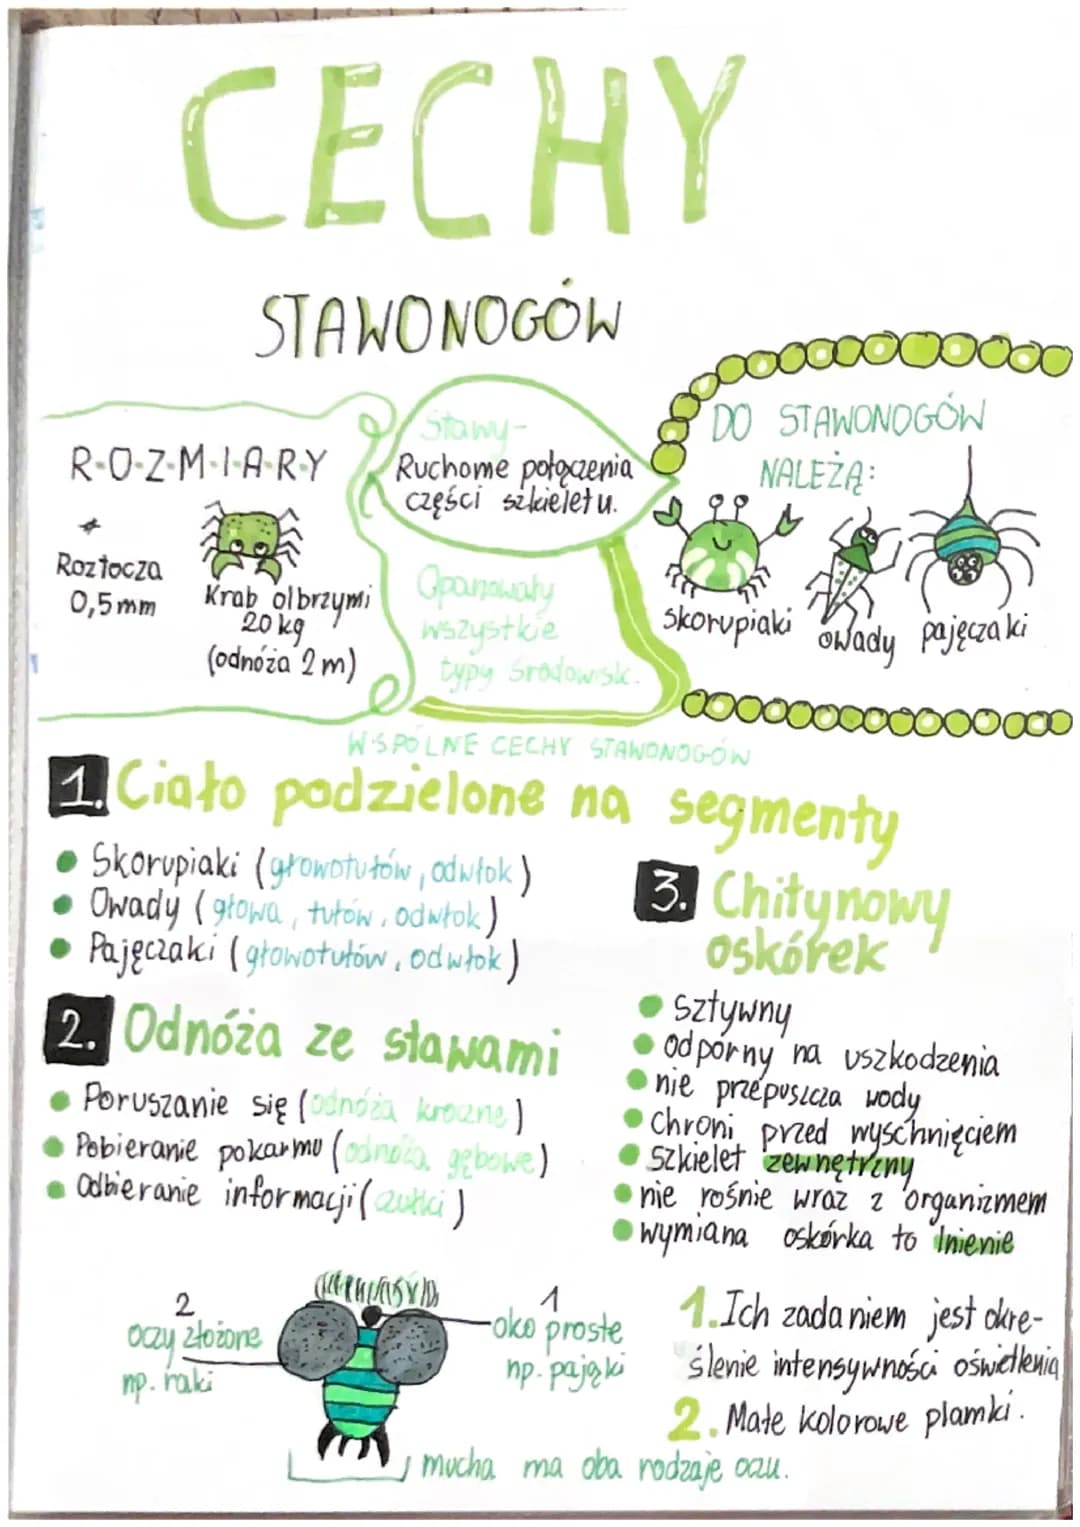 CECHY
STAWONOGÓW
R-O-Z-M-I-A-R-Y
Roztocza
0,5mm
Krab olbrzymi
20kg
(odnóża 2m)
Stawy-
Ruchome połączenia
części szkieletu.
Opanowały
wszystkie
typy środowisk.
DO STAWONOGÓW
NALEŻĄ:
skorupiaki
owady
pajęczaki
WSPÓLNE CECHY STAWONOGÓW
1. Ciało podzielone na segmenty
Skorupiaki (głowotułów, odwłok)
Owady (głowa, tułów, odwłok)
Pajęczaki (głowotułów, odwłok)
2. Odnóża ze stawami
Poruszanie się (odnóża kroczne)
Pobieranie pokarmu (odnóża gębowe)
Odbieranie informacji (czułki)
3. Chitynowy
oskórek
sztywny
odporny na uszkodzenia
nie przepuszcza wody
Chroni przed wyschnięciem
Szkielet zewnętrzny
nie rośnie wraz z organizmem
wymiana oskórka to lnienie
2
oczy złożone
np. raki
1
oko proste
np. pająki
mucha ma oba rodzaje oczu.
1. Ich zadaniem jest okre-
ślenie intensywności oświetlenia
2. Małe kolorowe plamki.